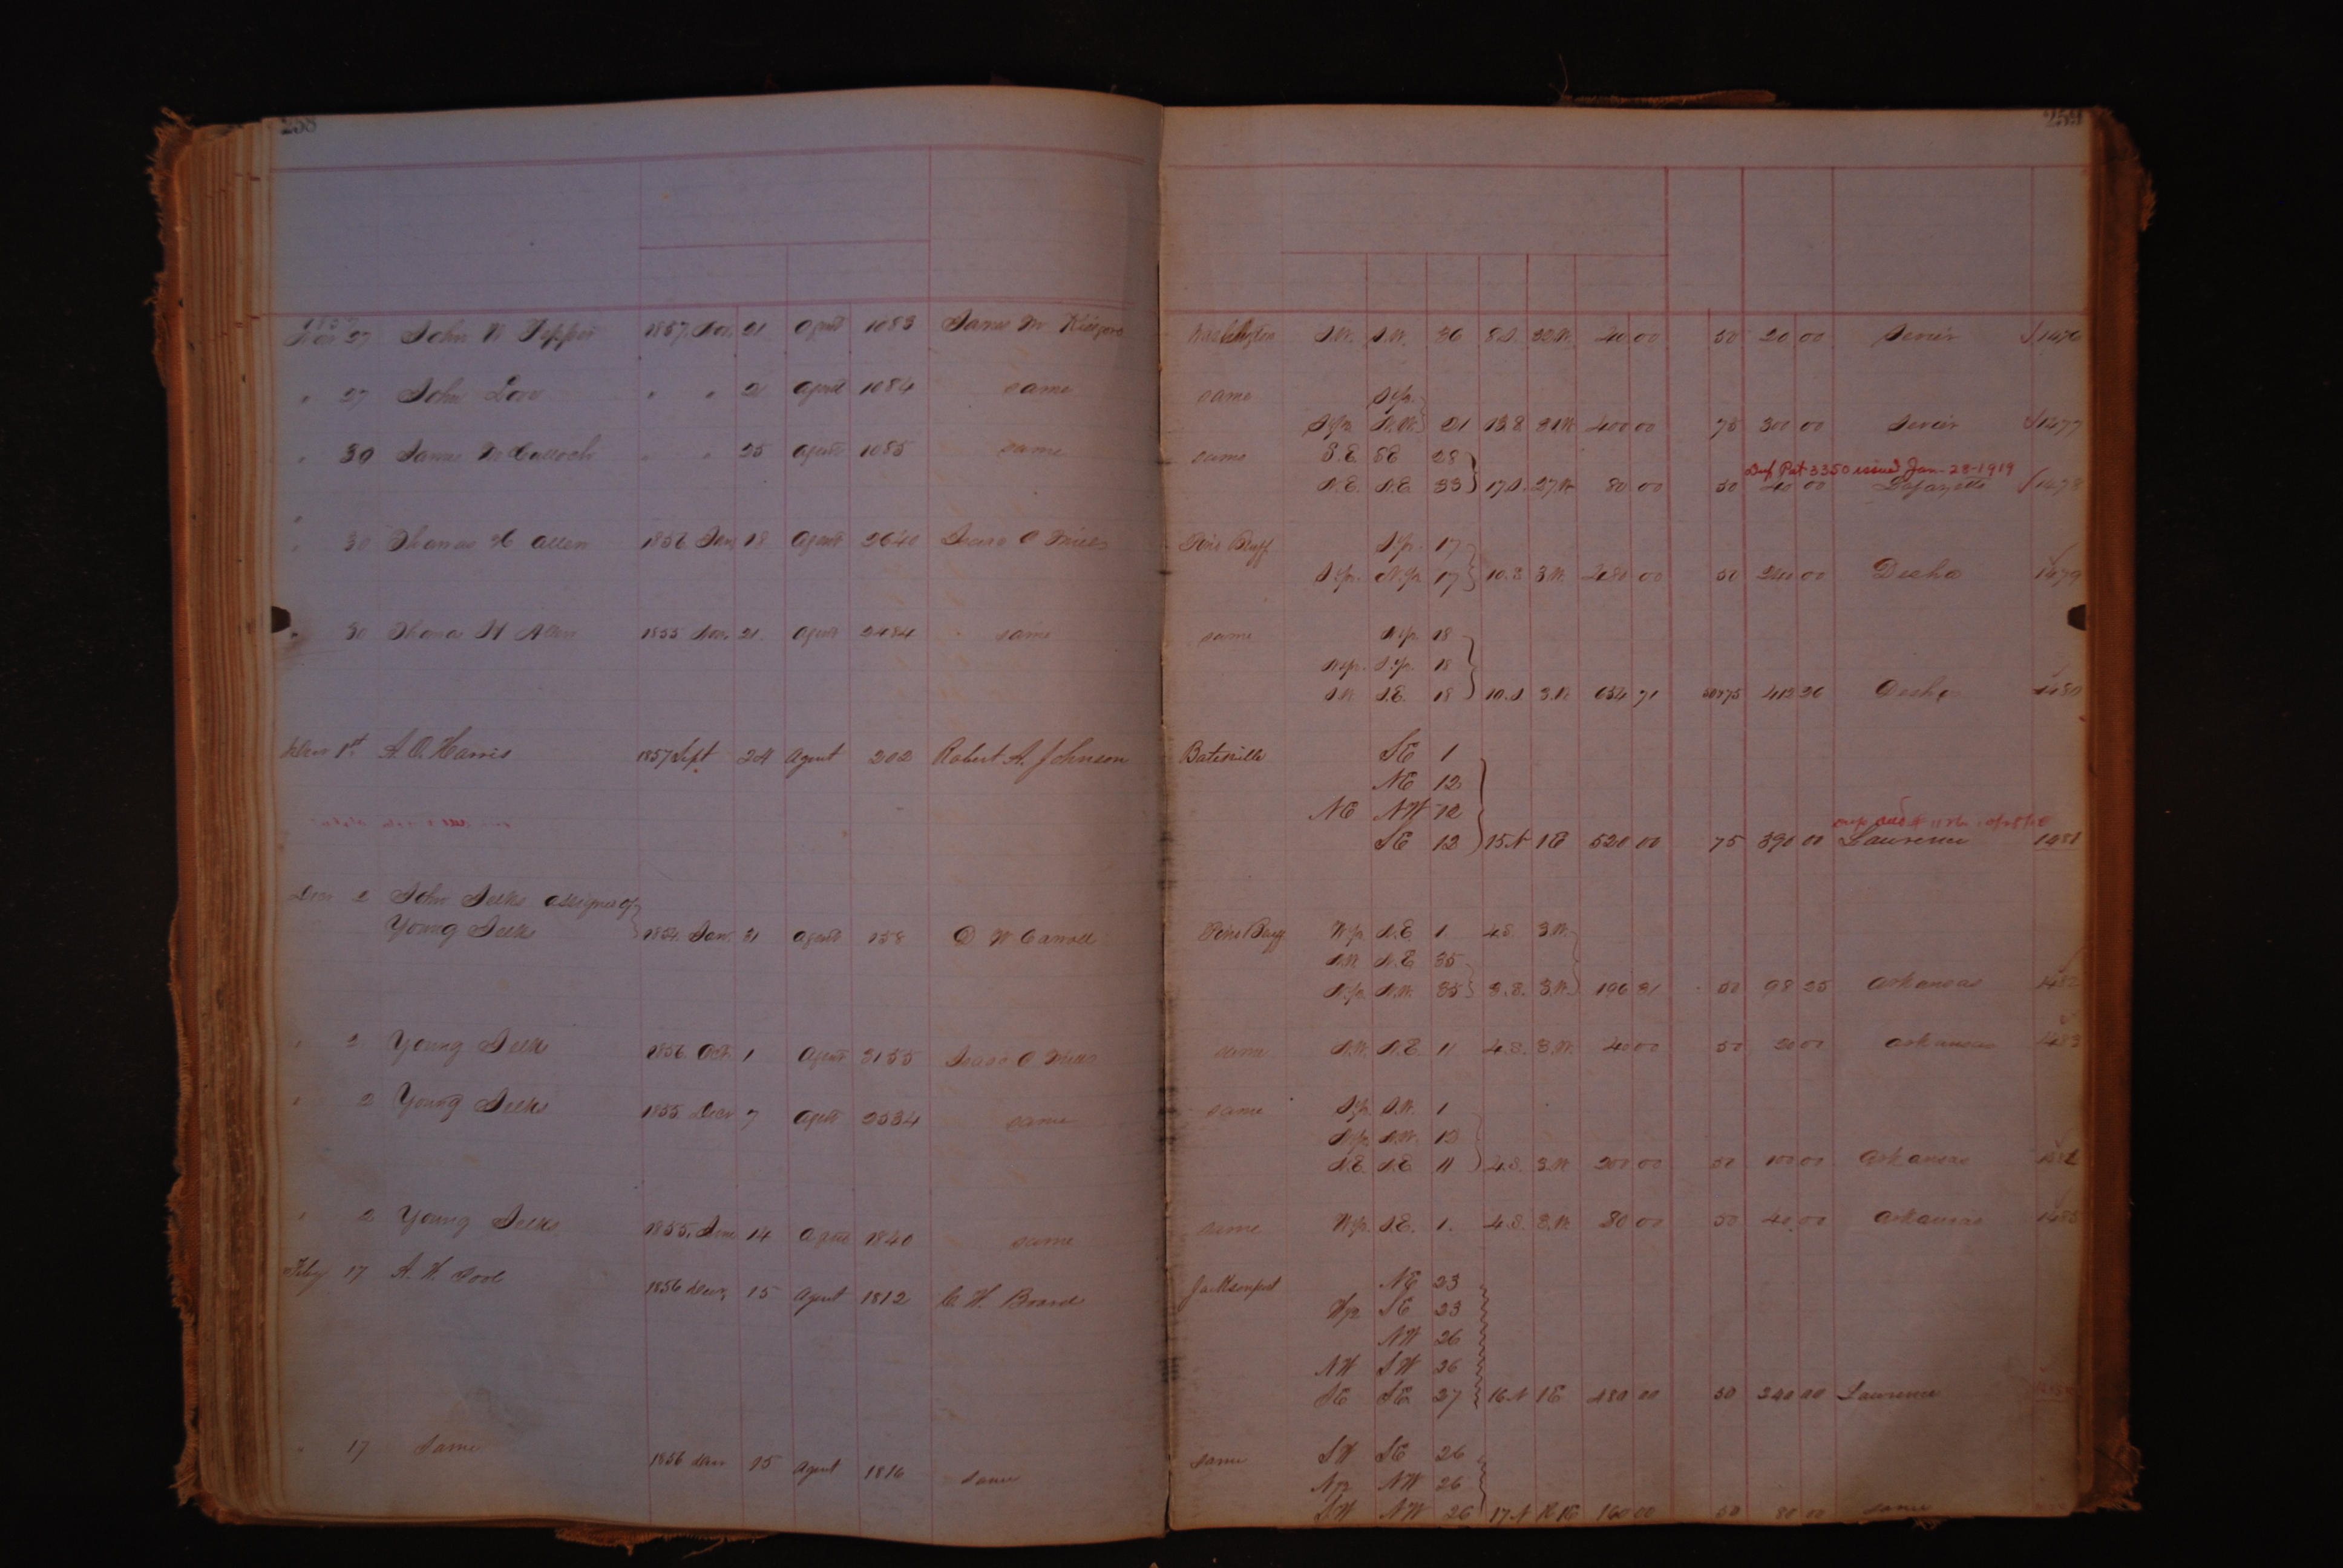 258
1857
Nov 27 John N 1857. Nov. 21 Agent 1083 James M Washington S.W. S.W. 36 8.S. 32.W. 40 00 50 20 00 Sevier 1476
" 27 John Dove " " 21 Agent 1084 same same S½
S½ N.W. 21 13.S. 31.W 400 00 75 300 00 Sevier 1477
" 30 James McCulloch " " 25 Agent 1085 same same S.E. SE 28
Dup Pat 3350 issued Jan-28-1919
N.E. N.E. 33 17.S. 27.W 80 00 50 40 00 Lafayette 1478
" 30 Thomas H Allen 1856 Jan 18 Agent 2640 Isaac C Mills Pine Bluff S½ 17
S½ N½ 17 10.S 3.W. 480 00 50 240 00 Desha 1479
" 30 Thomas H Allen 1855 Nov. 21. Agent 2484 same same N½ 18
N½ S½ 18
S.W. S.E. 18 10.S 3.W 654 71 50&75 413 36 Desha 1480
Decr 1st A. O. Harris 1857 Sept 24 Agent 202 Robert A. Johnson Batesville SE 1
NE 12
NE NW 12
SE 12 15 N 1E 520 00 75 390 00 Lawrence 1481
Decr 2 John Selke assignee of
Young Selke 1854. Jan. 31 Agent 158 D W Carroll Pine Bluff W½ N.E. 1 4.S. 3.W.
N.W. N.E 35
N½ N.W. 35 3.S. 3.W. 196 31 50 98 25 Arkansas 1482
" 2 Young Selke 1856. Oct. 1 Agent 3155 Isaac C Mills same N.W. N.E. 11 4.S. 3.W. 40 00 50 20 00 Arkansas 1483
" 2 Young Selke 1855 Decr 7 Agent 2534 same same S½ S.W. 1
N½ N.W. 12
N.E. N.E 11 4.S. 3.W 200 00 50 100 00 Arkansas 1484
" 2 Young Selke 1855. June 14 Agent 1840 same same W½ S.E. 1. 4.S. 3.W. 80 00 50 40 00 Arkansas 1485
Feby 17 A. H. Pool 1856 Decr, 15 Agent 1812 C. H. Board Jacksonport NE 23
W½ SE 23
NW 26
NW SW 26
SE SE 27 16 N 1E 480 00 50 240 00 Lawrence
" 17 Same 1856 Decr 15 Agent 1816 same same SW SE 26
N½ NW 26
SW NW 26 17 N 1E 160 00 50 80 00 same